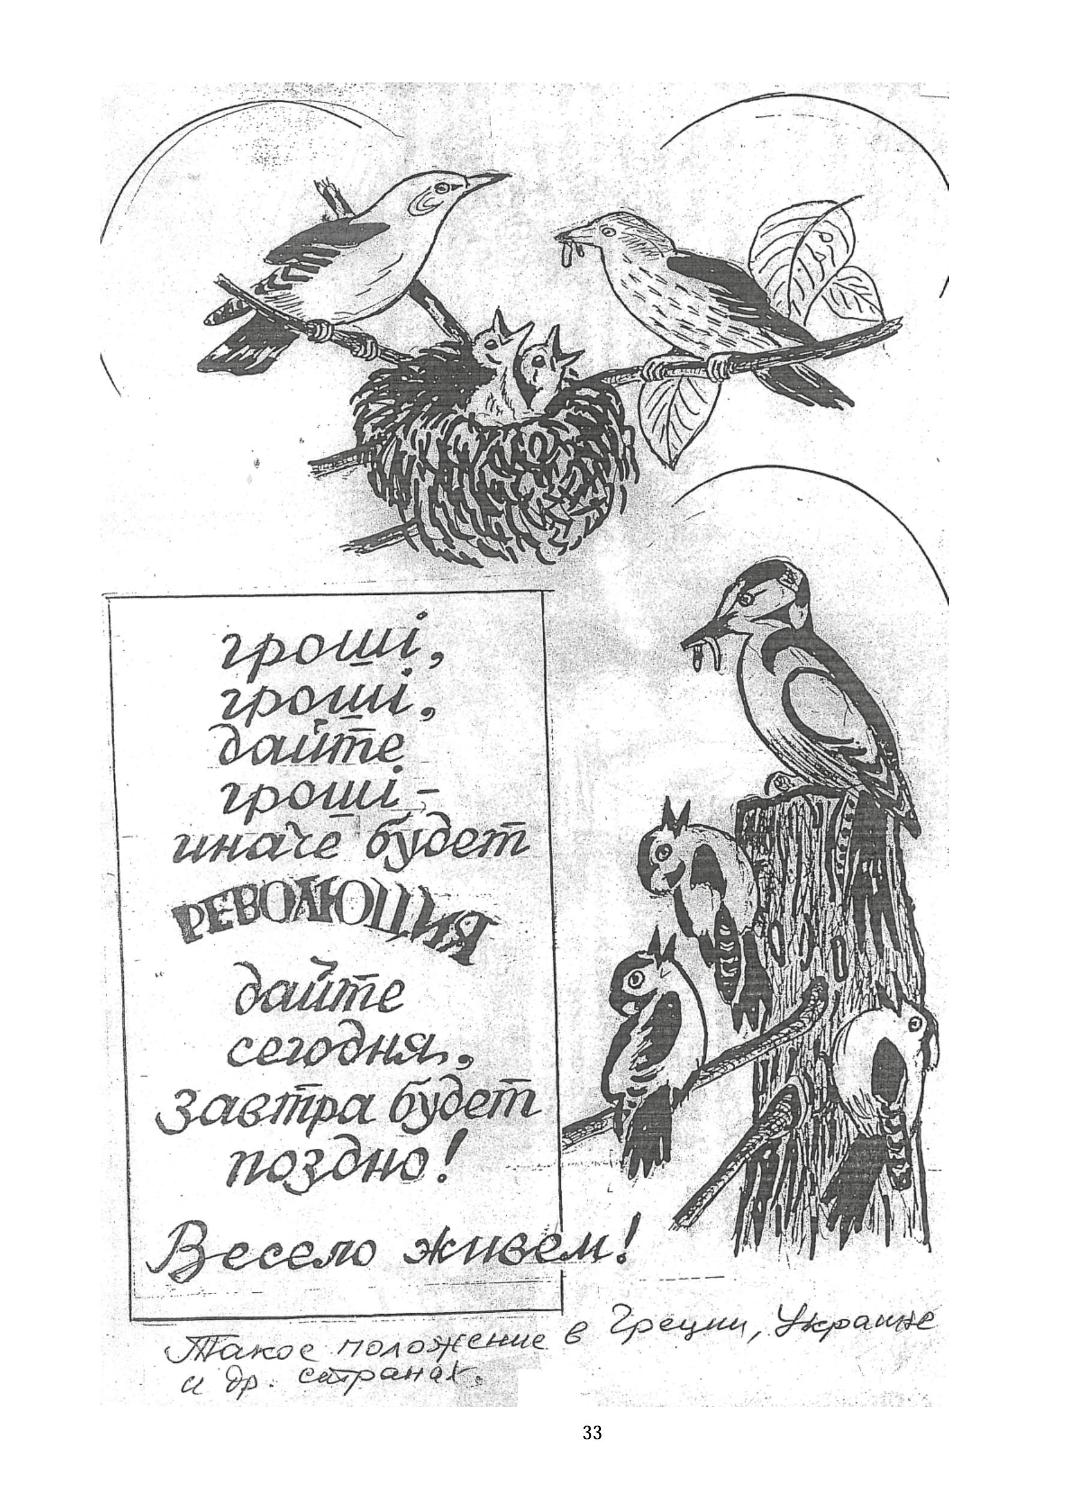 гроші,
гроші,
дайте
гроші -
иначе будет
РЕВОЛЮЦИЯ
дайте
сегодня,
завтра будет
поздно!
Весело живем!
Такое положение в Греции, Украине
и др. странах.
33